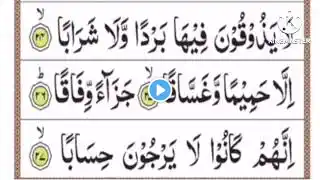 لَا يَذُوْقُوْنَ فِيْهَا بَرْدًا وَّلَا شَرَابًا ۙ﴿۲۴﴾
اِلَّا حَمِيْمًا وَّغَسَّاقًا ۙ﴿۲۵﴾ جَزَآءً وِّفَاقًا ؕ﴿۲۶﴾
اِنَّهُمْ كَانُوْا لَا يَرْجُوْنَ حِسَابًا ۙ﴿۲۷﴾